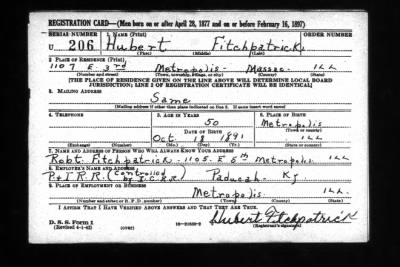 REGISTRATION CARD—(Men born on or after April 28, 1877 and on or before February 16, 1897)
SERIAL NUMBER 1. NAME (Print) ORDER NUMBER
U 206 Hubert Fitchpatrick
(First) (Middle) (Last)
2. PLACE OF RESIDENCE (Print)
1107 E. 3rd Metropolis - Massac - ILL
(Number and street) (Town, township, village, or city) (County) (State)
[THE PLACE OF RESIDENCE GIVEN ON THE LINE ABOVE WILL DETERMINE LOCAL BOARD
JURISDICTION; LINE 2 OF REGISTRATION CERTIFICATE WILL BE IDENTICAL]
3. MAILING ADDRESS
Same
[Mailing address if other than place indicated on line 2. If same insert word same]
4. TELEPHONE 5. AGE IN YEARS 6. PLACE OF BIRTH
50 Metropolis
DATE OF BIRTH (Town or county)
Oct 18 1891 ILL
(Exchange) (Number) (Mo.) (Day) (Yr.) (State or country)
7. NAME AND ADDRESS OF PERSON WHO WILL ALWAYS KNOW YOUR ADDRESS
Robt. Fitchpatrick - 1105 - E 5th Metropolis ILL
8. EMPLOYER'S NAME AND ADDRESS
P & I R.R. (Controlled by I.C.R.R.) Paducah - Ky
9. PLACE OF EMPLOYMENT OR BUSINESS
Metropolis ILL.
(Number and street or R. F. D. number) (Town) (County) (State)
I AFFIRM THAT I HAVE VERIFIED ABOVE ANSWERS AND THAT THEY ARE TRUE.
Hubert Fitchpatrick
D. S. S. Form 1 (Registrant's signature)
(Revised 4-1-42) (over)